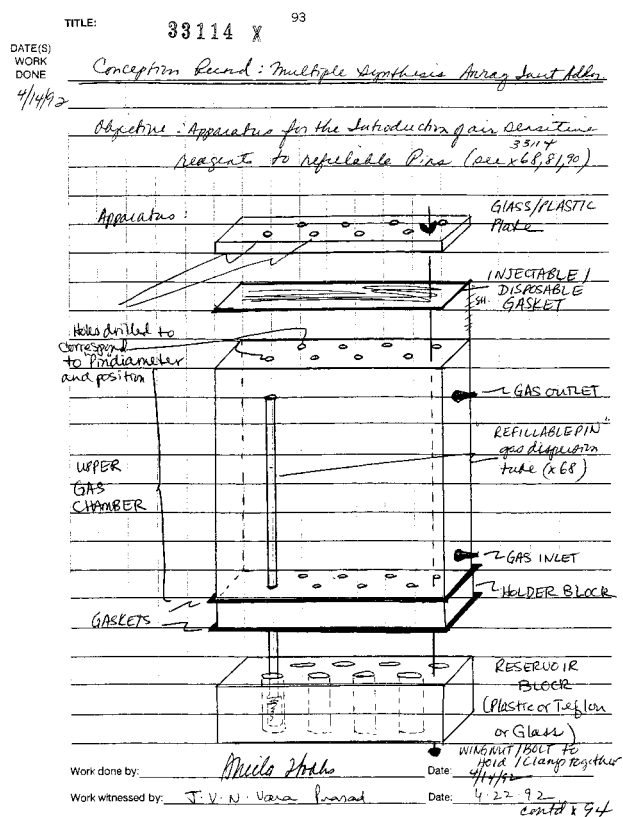 93
TITLE: 33114 X
DATE(S)
WORK
DONE
4/14/92
Conception Record: Multiple Synthesis Array
Objective: Apparatus for the Introduction of air sensitive
33114
reagents to refillable Pins (see x68,81,90)
Apparatus:
GLASS/PLASTIC
Plate
INJECTABLE/
DISPOSABLE
GASKET
SH.
Holes drilled to
correspond
to "Pin diameter
and position
GAS OUTLET
"REFILLABLE PIN"
gas dispersion
tube (x68)
UPPER
GAS
CHAMBER
GAS INLET
HOLDER BLOCK
GASKETS
RESERVOIR
BLOCK
(Plastic or Teflon
or Glass)
WINGNUT/BOLT to
Hold/Clamp together
Work done by: Date: 4/14/92
Work witnessed by: J.V.N. Vara Prasad Date: 4.22.92
contd x 94